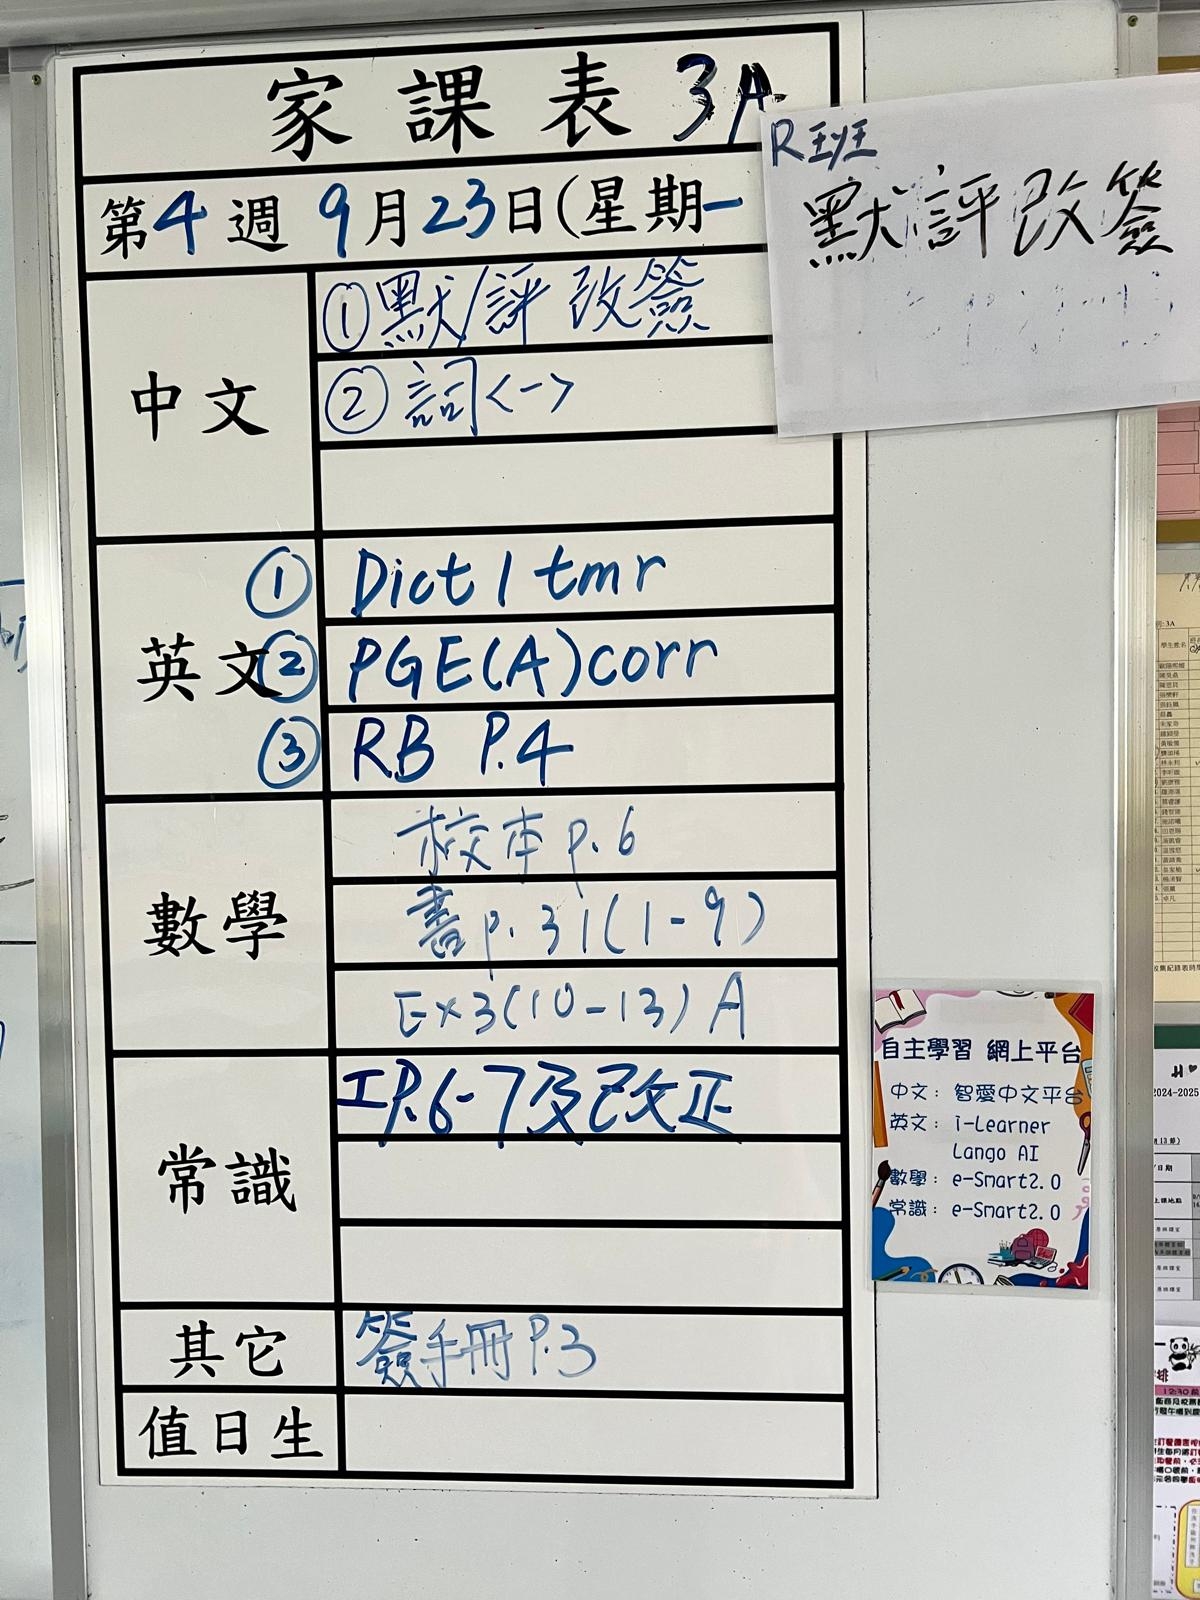 家課表 3A
R班
默評改簽
第4週 9月23日(星期一
中文
①默/評 改簽
②詞<一>
英文
① Dict 1 tmr
② PGE(A)corr
③ RB P.4
數學
校本 p.6
書 p.31(1-9)
Ex3(10-13) A
常識
工P.6-7及已改正
其它
簽手冊 P.3
值日生
自主學習 網上平台
中文：智愛中文平台
英文：i-Learner
Lango AI
數學：e-Smart2.0
常識：e-Smart2.0
3A
學生姓名
2024-2025
日期
12:30前